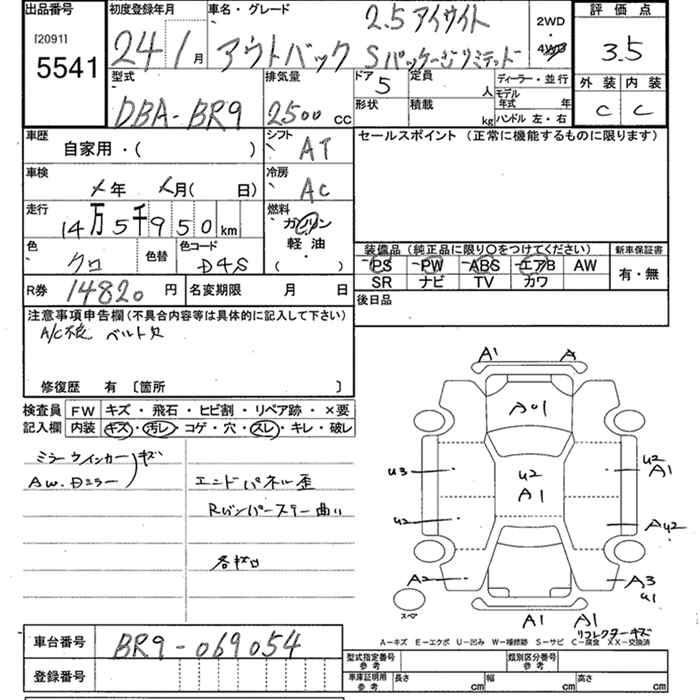 出品番号
[2091]
5541
初度登録年月
24年1月
車名・グレード
2.5 アイサイト
アウトバック Sパッケージリミテッド
2WD
4WD
評価点
3.5
外装 内装
C C
型式
DBA-BR9
排気量
2500 cc
ドア 5
定員 人
形状
積載 kg
ディーラー・並行
モデル年式 年
ハンドル 左・右
車歴
自家用・( )
シフト
AT
セールスポイント (正常に機能するものに限ります)
車検
年 月( 日)
冷房
AC
走行
14万5千950km
燃料
ガソリン
軽油
( )
色
クロ
色替
色コード
D4S
装備品 (純正品に限り○をつけてください)
PS PW ABS エアB AW
SR ナビ TV カワ
新車保証書
有・無
R券 14820 円
名変期限 月 日
後日品
注意事項申告欄 (不具合内容等は具体的に記入して下さい)
A/C不良 ベルト欠
修復歴 有 〔箇所 〕
検査員記入欄
FW キズ・飛石・ヒビ割・リペア跡・×要
内装 キズ・汚レ・コゲ・穴・スレ・キレ・破レ
ミラーウインカー キズ
AW.Dミラー
エンドパネル歪
Rバンパーステー曲り
各サビ
A1 A
A01
U3
U2
A1
U2
A1
U2
AU2
A2
A3
U1
スペ
A1 A1
リフレクターキズ
A-キズ E-エクボ U-凹み W-補修跡 S-サビ C-腐食 XX-交換済
車台番号
BR9-069054
登録番号
型式指定番号 参考
類別区分番号 参考
車庫証明用 参考
長さ cm
幅 cm
高さ cm